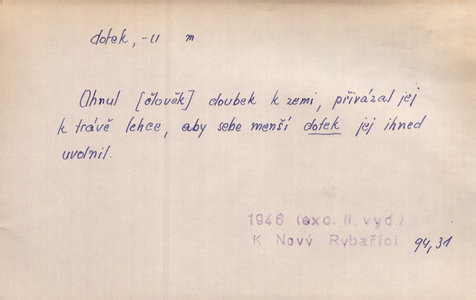 dotek, -u m
Ohnul [člověk] doubek k zemi, přivázal jej
k trávě lehce, aby sebe menší dotek jej ihned
uvolnil.
1946 (exc. II. vyd.)
K Nový Rybařící 94,31